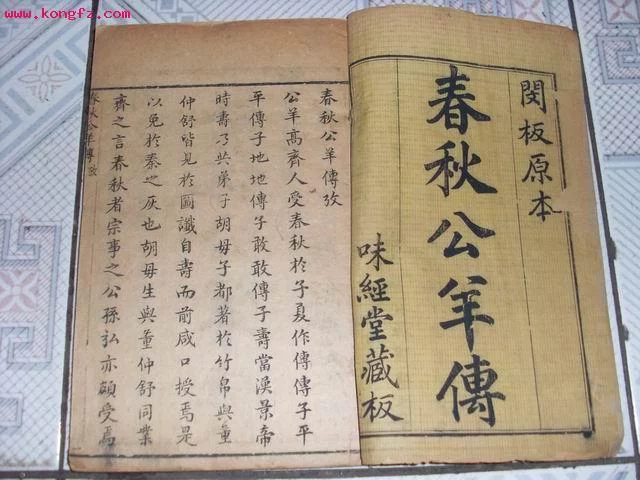 www.kongfz.com
閔板原本
春秋公羊傳
味經堂藏板
春秋公羊傳攷
公羊高齊人受春秋於子夏作傳傳子平
平傳子地地傳子敢敢傳子壽當漢景帝
時壽乃共弟子胡毋子都著於竹帛與董
仲舒皆見於圖讖自壽而前咸口授焉是
以免於秦之灰也胡毋生與董仲舒同業
齊之言春秋者宗事之公孫弘亦頗受焉
春秋公羊傳攷